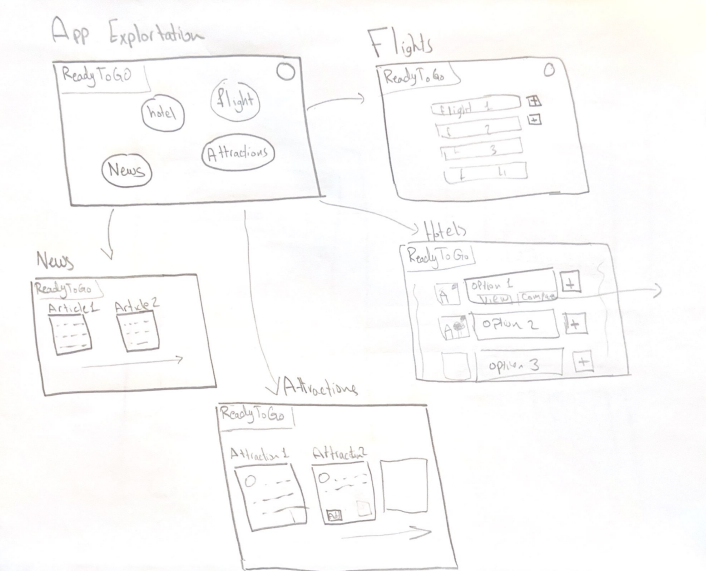 App Explortation
ReadyToGO
hotel
flight
News
Attractions
Flights
ReadyToGo
Flight 1
2
3
Hotels
ReadyToGo
A
Option 1
View
+
A
Option 2
+
Option 3
+
News
ReadyToGo
Article1
Article2
Attractions
ReadyToGo
Attraction1
Add